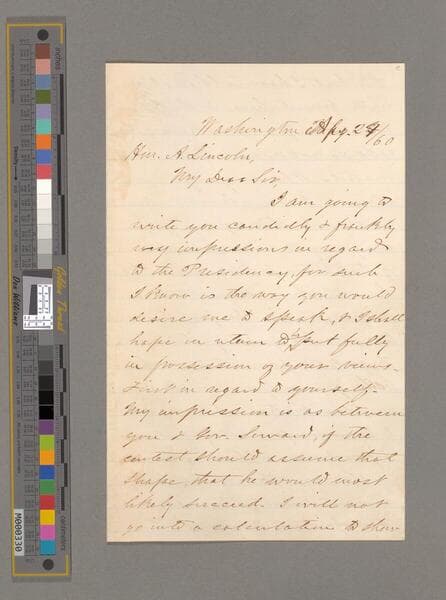 Washington Apr. 24/60
Hon. A. Lincoln,
My Dear Sir,
I am going to
write you candidly & frankly
my impressions in regard
to the Presidency, for such
I know is the way you would
desire me to speak, & I shall
hope in return to be put fully
in possession of your views.
First in regard to yourself.
My impression is as between
you & Gov. Seward, if the
contest should assume that
shape, that he would most
likely succeed. I will not
go into a calculation to show
inches
Density
Golden Thread
Don Williams
M000330
centimeters